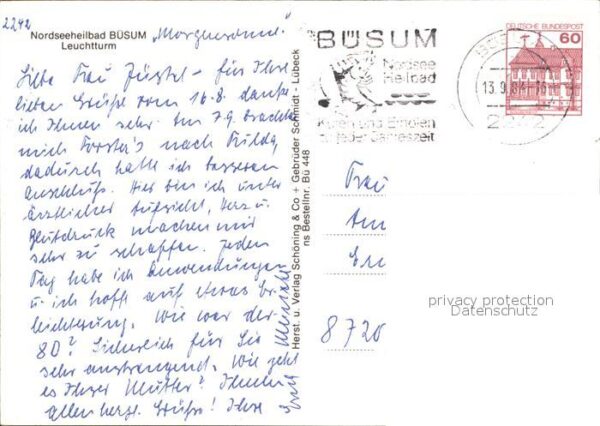 2242
Nordseeheilbad BÜSUM
Leuchtturm
"Morgensonne."
Liebe Frau - für Ihre
lieben Grüße vom 16.8. danke
ich Ihnen sehr. Am 7.9. brachte
mich Forster's nach Fulda,
dadurch hatte ich besseren
Anschluß. Hier bin ich unter
ärztlicher Aufsicht, Herz u.
Blutdruck machen mir
sehr zu schaffen. Jeden
Tag habe ich Anwendungen
u. ich hoffe auf etwas Er-
leichterung. Wie war der
80? Sicherlich für Sie
sehr anstrengend. Wie geht
es Ihrer Mutter? Ihnen
allen herzl. Grüße! Ihre
Herst. u. Verlag Schöning & Co + Gebrüder Schmidt - Lübeck
ns Bestellnr. Bü 448
BÜSUM
Nordsee
Heilbad
Kuren und Erholen
zu jeder Jahreszeit
13.9.84-16
2242
DEUTSCHE BUNDESPOST
60
Frau
8720
privacy protection
Datenschutz